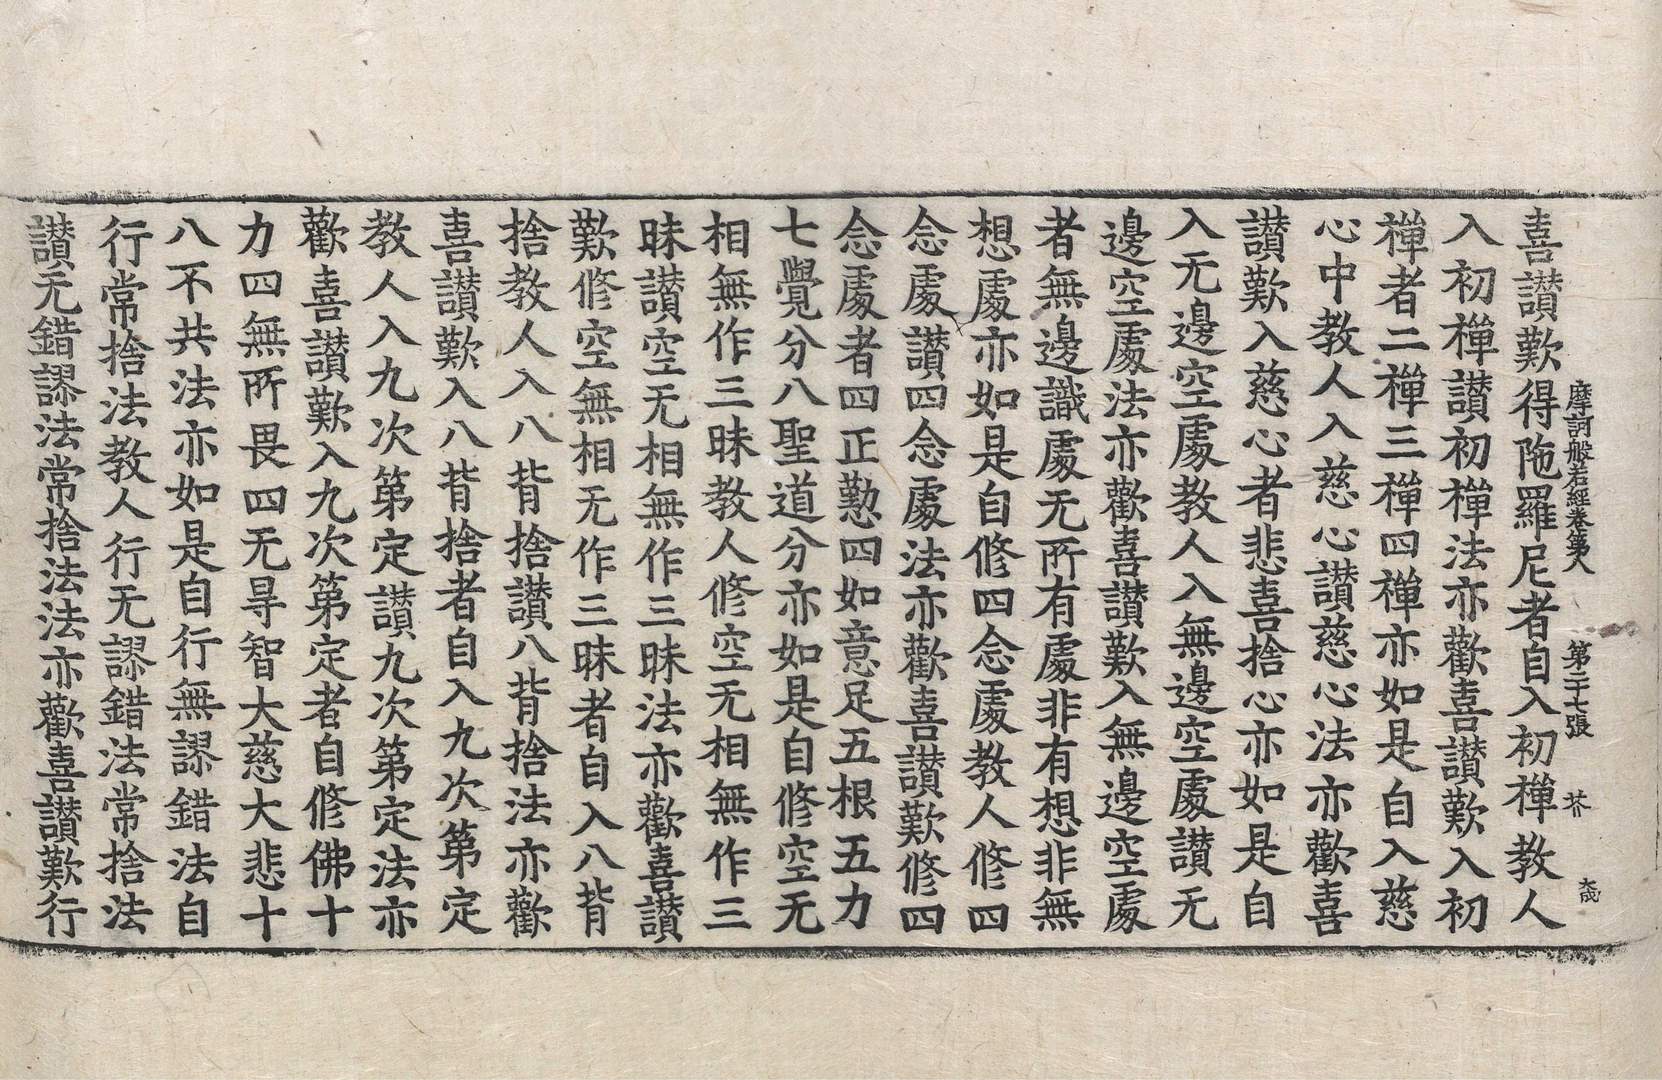 摩訶般若經卷第八 第二十七張 芥 大成
喜讃歎得陁羅尼者自入初禪教人
入初禪讃初禪法亦歡喜讃歎入初
禪者二禪三禪四禪亦如是自入慈
心中教人入慈心讃慈心法亦歡喜
讃歎入慈心者悲喜捨心亦如是自
入无邊空處教人入無邊空處讃无
邊空處法亦歡喜讃歎入無邊空處
者無邊識處无所有處非有想非無
想處亦如是自修四念處教人修四
念處讃四念處法亦歡喜讃歎修四
念處者四正懃四如意足五根五力
七覺分八聖道分亦如是自修空无
相無作三昧教人修空无相無作三
昧讃空无相無作三昧法亦歡喜讃
歎修空無相无作三昧者自入八背
捨教人入八背捨讃八背捨法亦歡
喜讃歎入八背捨者自入九次第定
教人入九次第定讃九次第定法亦
歡喜讃歎入九次第定者自修佛十
力四無所畏四无㝵智大慈大悲十
八不共法亦如是自行無謬錯法自
行常捨法教人行无謬錯法常捨法
讃无錯謬法常捨法法亦歡喜讃歎行